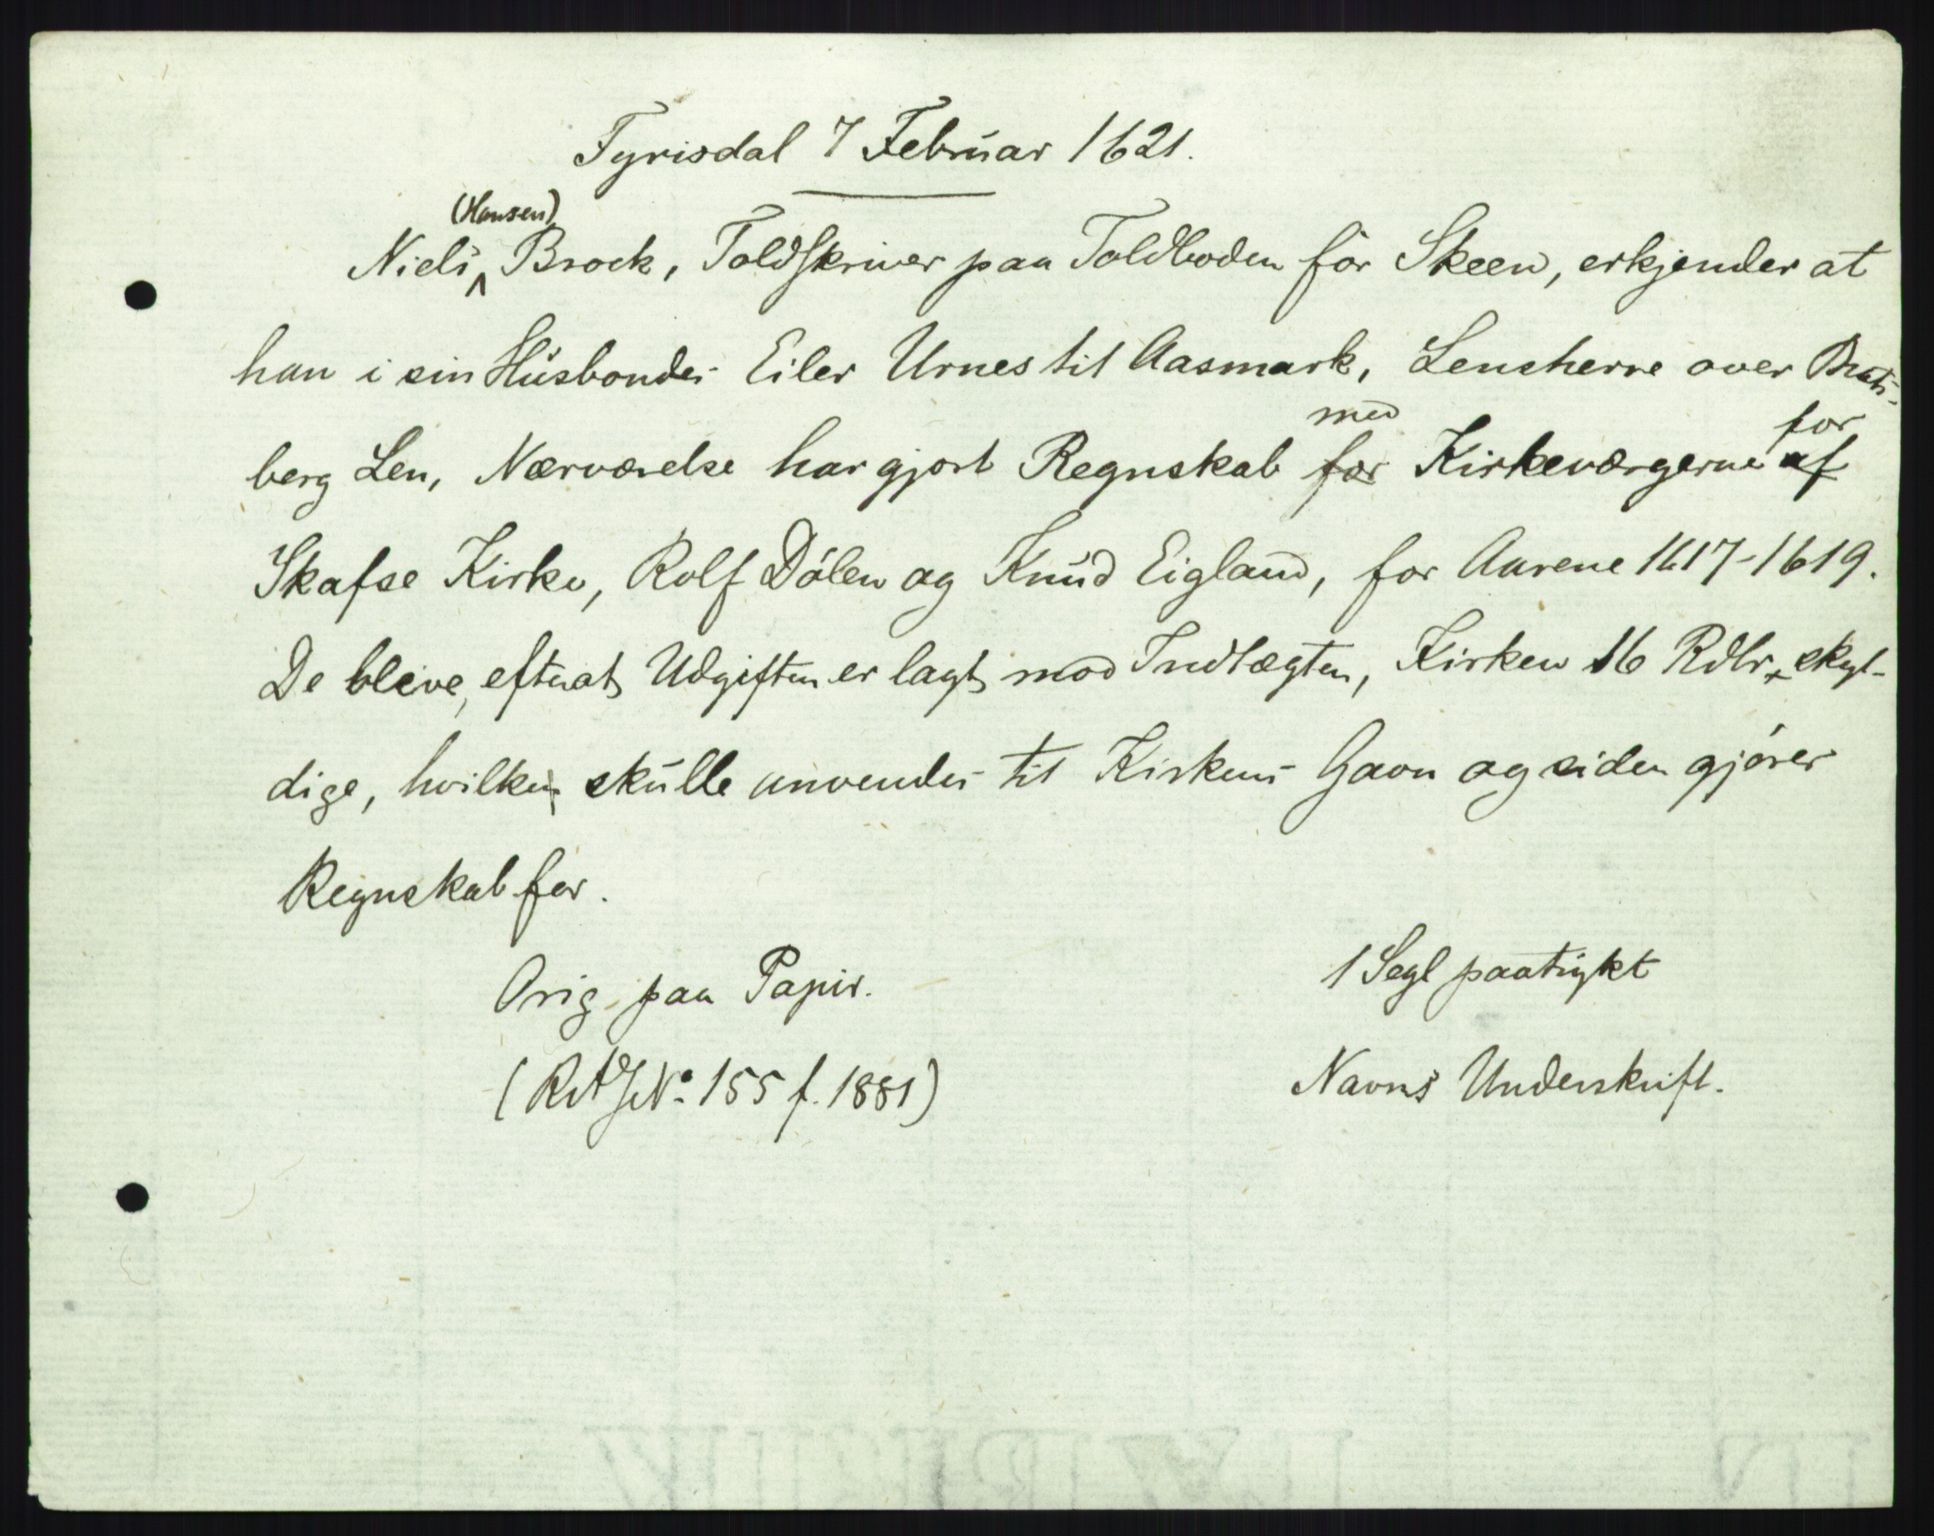 Tyrisdal 7 Februar 1621.
(Hansen)
Niels ^ Brock, Toldskriver paa Toldboden för Skeen, erkjender at
han i sin Husbondes Eiler Urnes til Aasmark, Lensherre over Brats-
med for
berg Len, Nærværelse har gjort Regnskab for Kirkeværgerne af
Skafse Kirke, Rolf Dölen og Knud Eigland, for Aarene 1617-1619.
De bleve, efterat Udgiften er lagt mod Indtægten, Kirken 16 Rdlr skyl-
dige, hvilke skulle anvendes til Kirkens Gavn og siden gjöres
Regnskab for.
Orig paa Papir.
1 Segl paatrykt
(RAJNo. 155 f. 1881)
Navns Underskrift.